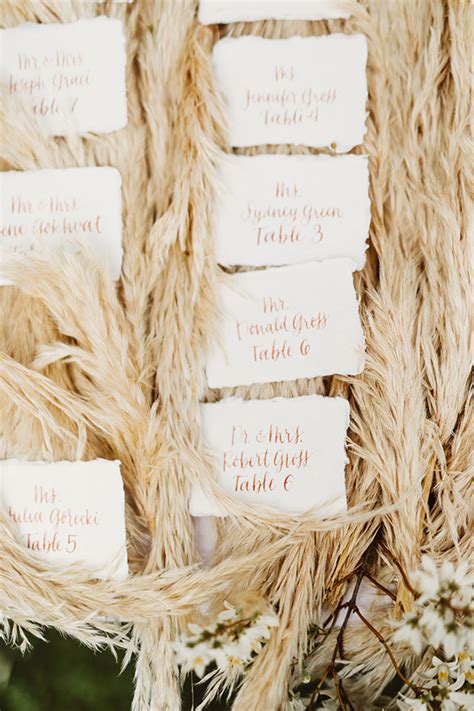 Mr. & Mrs.
Joseph Graci
Table 7
Ms.
Jennifer Gross
Table 4
Mr. & Mrs.
Gokhwat
Ms.
Sydney Green
Table 3
Mr.
Donald Gross
Table 6
Dr. & Mrs.
Robert Gross
Table 6
Ms.
Julia Gorecki
Table 5